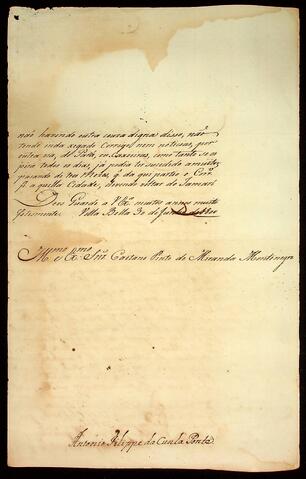 não havendo outra couza digna disso, não
tendo inda xegado Correyo, nem noticias, por
outra via, do Pará, ou Cazearas, como tanto se es
pera todos os dias, já podia ter succedido a muito,
passando de tres Mezes, q̃ da qui partio o Cor.o
p.a aquella Cidade, devendo estar de
Deos Guarde a V Ex.a muitos annos muito
felizmente. Villa Bella 30 de
Ill.mo e Ex.mo Snr̃ Caetano Pinto de Miranda Montenegro
Antonio Filippe da Cunha Ponte